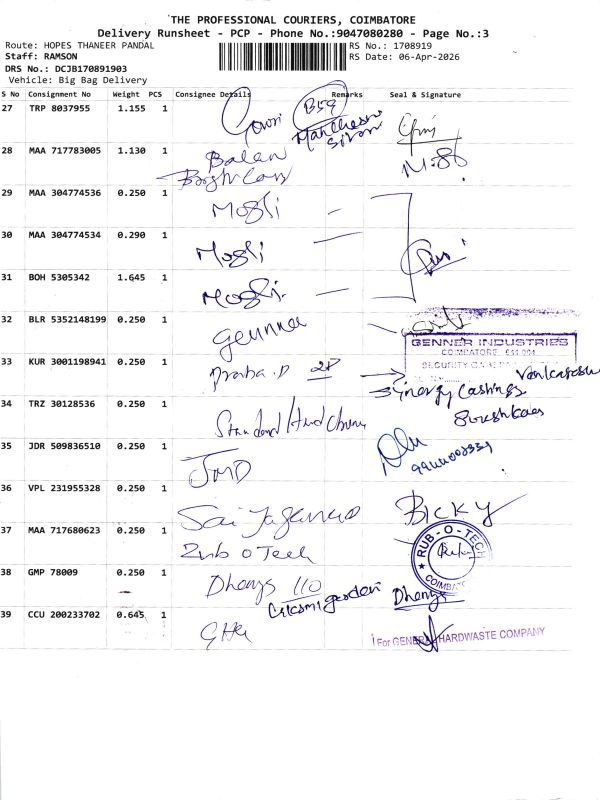 THE PROFESSIONAL COURIERS, COIMBATORE
Delivery Runsheet - PCP - Phone No.:9047080280 - Page No.:3
Route: HOPES THANEER PANDAL
RS No.: 1708919
Staff: RAMSON
RS Date: 06-Apr-2026
DRS No.: DCJB170891903
Vehicle: Big Bag Delivery
S No Consignment No Weight PCS Consignee Details Remarks Seal & Signature
27 TRP 8037955 1.155 1 Gowri B59
28 MAA 717783005 1.130 1 Balan
29 MAA 304774536 0.250 1 Mogli
30 MAA 304774534 0.290 1 Mogli
31 BOH 5305342 1.645 1 Mogli
32 BLR 5352148199 0.250 1
GENNER INDUSTRIES
COIMBATORE
33 KUR 3001198941 0.250 1 Praba.D
Synergy Castings
34 TRZ 30128536 0.250 1
35 JDR 509836510 0.250 1 JMD
36 VPL 231955328 0.250 1 Bicky
37 MAA 717680623 0.250 1 Rub o Tech
RUB-O-TECH
COIMBA
38 GMP 78009 0.250 1 Dhenys 110 Dhenys
39 CCU 200233702 0.645 1
For GENERAL HARDWASTE COMPANY